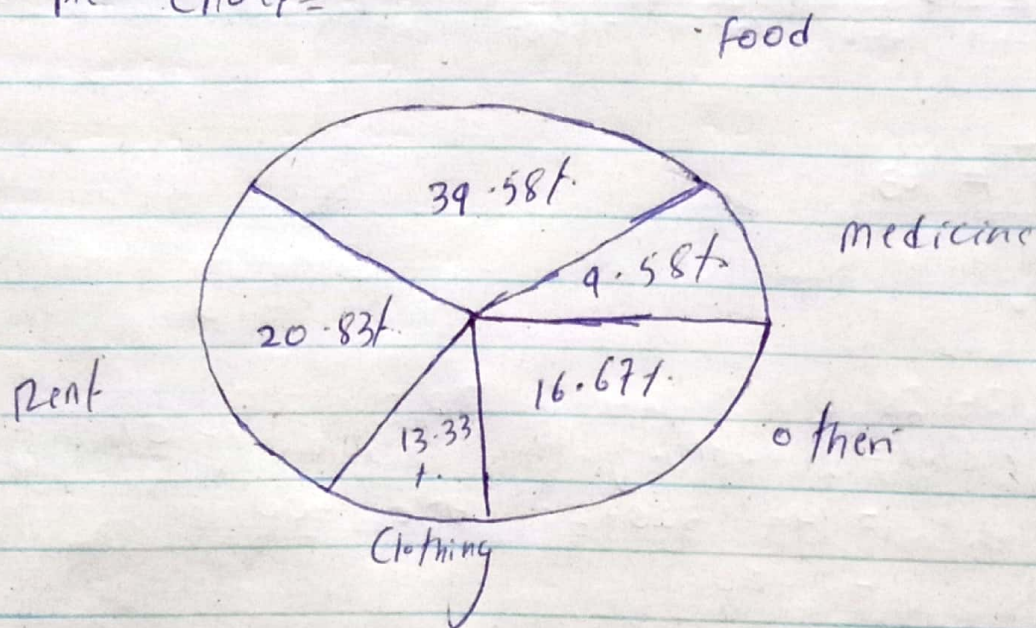 food
39.58%
medicine
9.58%
20.83%
16.67%
Rent
13.33
%
other
Clothing